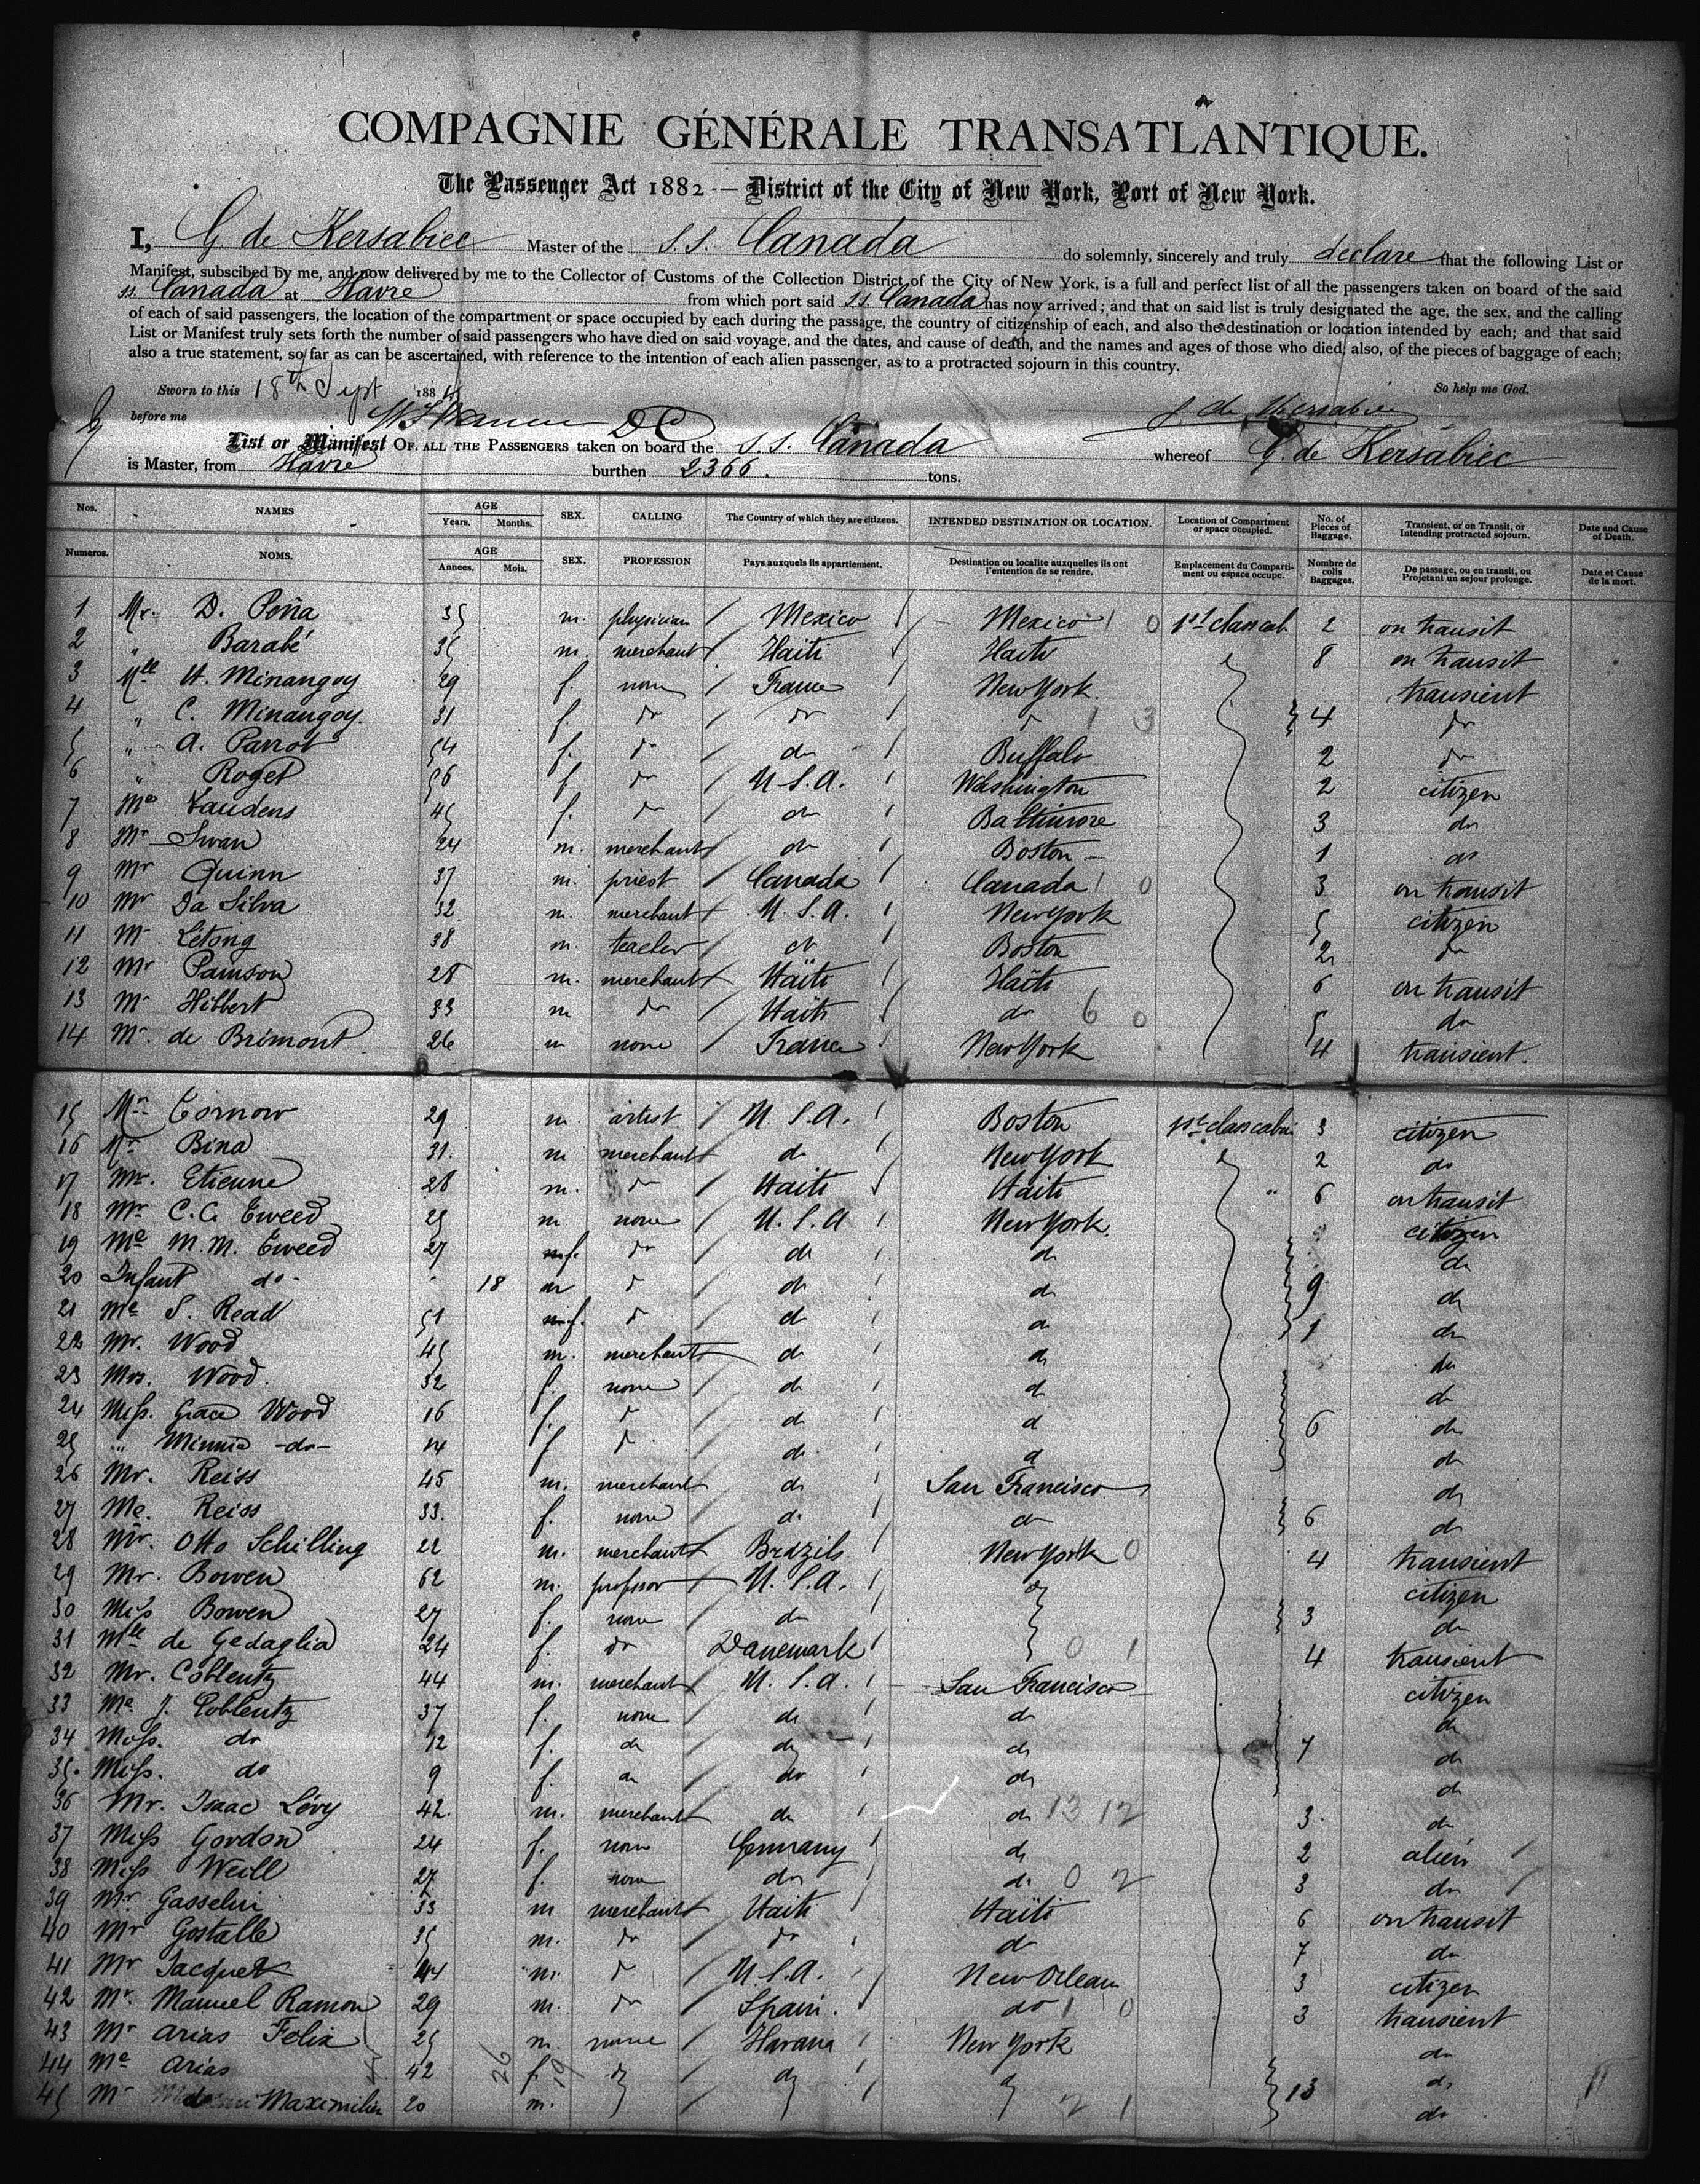 COMPAGNIE GÉNÉRALE TRANSATLANTIQUE.
The Passenger Act 1882 — District of the City of New York, Port of New York.
I, G de Kersabiec Master of the S.S. Canada do solemnly, sincerely and truly declare that the following List or
Manifest, subscibed by me, and now delivered by me to the Collector of Customs of the Collection District of the City of New York, is a full and perfect list of all the passengers taken on board of the said
ss Canada at Havre from which port said s.s. Canada has now arrived; and that on said list is truly designated the age, the sex, and the calling
of each of said passengers, the location of the compartment or space occupied by each during the passage, the country of citizenship of each, and also the destination or location intended by each; and that said
List or Manifest truly sets forth the number of said passengers who have died on said voyage, and the dates, and cause of death, and the names and ages of those who died; also, of the pieces of baggage of each;
also a true statement, so far as can be ascertained, with reference to the intention of each alien passenger, as to a protracted sojourn in this country.
Sworn to this 18th Sept 188 So help me God.
before me G. de Kersabiec
List or Manifest OF ALL THE PASSENGERS taken on board the S.S. Canada whereof G. de Kersabiec
is Master, from Havre burthen 2366. tons.
Nos. NAMES AGE Years. Months. SEX. CALLING The Country of which they are citizens. INTENDED DESTINATION OR LOCATION. Location of Compartment or space occupied. No. of Pieces of Baggage. Transient, or on Transit, or Intending protracted sojourn. Date and Cause of Death.
Numeros. NOMS. AGE Annees. Mois. SEX. PROFESSION Pays auxquels ils appartiennent. Destination ou localite auxquelles ils ont l'entention de se rendre. Emplacement du Comparti-ment ou espace occupe. Nombre de colis Baggages. De passage, ou en transit, ou Projetant un sejour prolonge. Date et Cause de la mort.
1 Mr. D. Peña 35 m. physician Mexico Mexico 1 0 1st class cab. 2 on transit
2 " Barabé 35 m. merchant Haiti Haiti 8 on transit
3 Mlle H. Minangoy 29 f. none France New York. transient
4 " C. Minangoy 31 f. do do do 1 3 4 do
5 " A. Parrot 54 f. do do Buffalo 2 do
6 " Roget 56 f. do U.S.A. Washington 2 citizen
7 Me Vaudens 45 f. do do Baltimore 3 do
8 Mr Swan 24 m. merchant do Boston 1 do
9 Mr Quinn 37 m. priest Canada Canada 1 0 3 on transit
10 Mr Da Silva 32 m. merchant U.S.A. New York 5 citizen
11 Mr Létong 38 m. teacher do Boston 2 do
12 Mr Pamson 28 m. merchant Haïti Haïti 6 on transit
13 Mr Hibbert 33 m do Haïti do 6 0 5 do
14 Mr. de Brimont 26 m none France New York 4 transient.
15 Mr Tornow 29 m. artist U.S.A. Boston 1st class cabin 3 citizen
16 Mr Bina 31. m merchant do New York 2 do
17 Mr. Etienne 28 m. do Haiti Haiti " 6 on transit
18 Mr C.C. Tweed 25 m none U.S.A New York. citizen
19 Me M.M. Tweed 27 f. do do do do
20 Infant do- 18 m do do do 9 do
21 Me S. Read 51 f. do do do 1 do
22 Mr. Wood 45 m. merchant do do do
23 Mrs. Wood. 32 f. none do do do
24 Miss. Grace Wood 16 f. do do do 6 do
25 " Minnie -do- 14 f do do do do
26 Mr. Reiss 45 m. merchant do San Francisco do
27 Me. Reiss 33. f. none do do 6 do
28 Mr. Otto Schilling 22 m. merchant Brazils New York 0 4 transient
29 Mr. Bowen 62 m. professor U.S.A. do citizen
30 Miss Bowen 27 f. none do 3 do
31 Mlle de Gedaglia 24 f. do Danemark 0 1 4 transient
32 Mr. Coblentz 44 m. merchant U.S.A. San Francisco citizen
33 Me J. Coblentz 37 f. none do do do
34 Miss. do 12 f. do do do 7 do
35. Miss. do 9 f. do do do do
36 Mr. Isaac Lévy 42. m. merchant do do 13 12 3. do
37 Miss Gordon 24 f. none Germany do 2 alien
38 Miss Weill 27 f. none do do 0 2 3 do
39 Mr. Gasselin 33 m merchant Haiti Haïti 6 on transit
40 Mr Gostalle 35 m. do do do 7 do
41 Mr Jacquet 44 m. do U.S.A. New Orleans 3 citizen
42 Mr. Manuel Ramon 29 m. do Spain. do 1 0 3 transient
43 Mr Arias Felix 25 m. none Havana New York do
44 Me Arias 42 f. do do do do
45 Mr Maximilien 20 m. 2 1 13 do
26 19